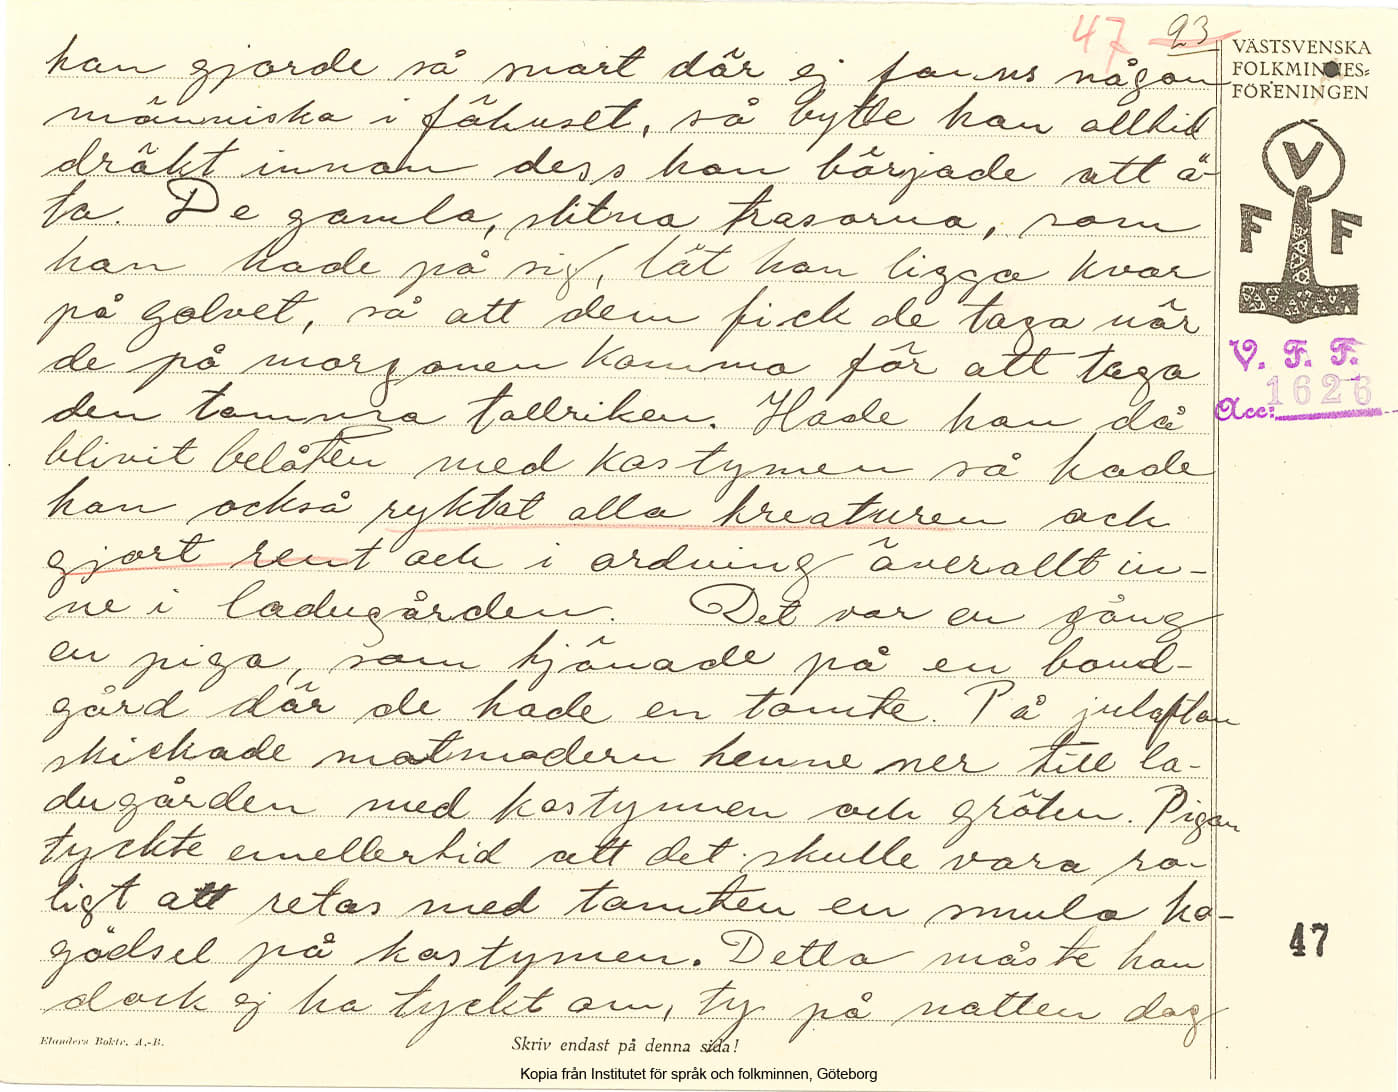 47 23
VÄSTSVENSKA
FOLKMINNES-
FÖRENINGEN
V
F F
V. F. F.
Acc: 1626
han gjorde så snart där ej fanns någon
människa i fähuset, så bytte han alltid
dräkt innan dess han började att ä-
ta. De gamla, slitna trasorna, som
han hade på sig, lät han ligga kvar
på golvet, så att dem fick de taga när
de på morgonen komma för att taga
den tomma tallriken. Hade han då
blivit belåten med kostymen så hade
han också ryktat alla kreaturen och
gjort rent och i ordning överallt in-
ne i ladugården. Det var en gång
en piga, som tjänade på en bond-
gård där de hade en tomte. På julafton
skickade matmodern henne ner till la-
dugården med kostymen och gröten. Pigan
tyckte emellertid att det skulle vara ro-
ligt att retas med tomten en smula ko-
gödsel på kostymen. Detta måste han
dock ej ha tyckt om, ty på natten dog
47
Elanders Boktr. A.-B.
Skriv endast på denna sida!
Kopia från Institutet för språk och folkminnen, Göteborg